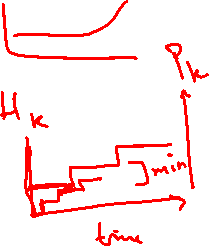 P_k
H_k
min
time